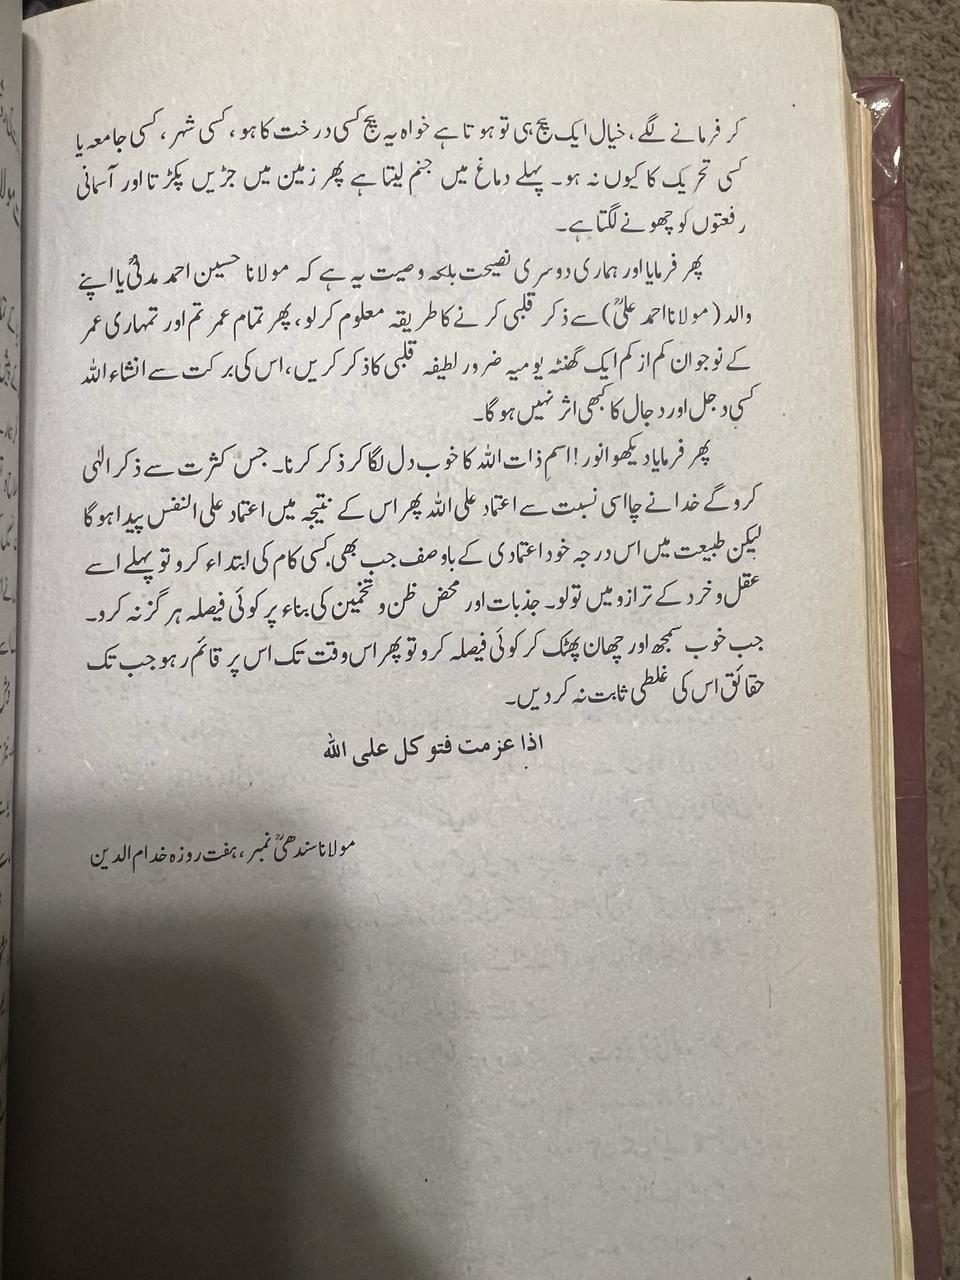 کر فرمانے لگے، خیال ایک بیج ہی تو ہوتا ہے خواہ یہ بیج کسی درخت کا ہو، کسی شہر، کسی جامعہ یا
کسی تحریک کا کیوں نہ ہو۔ پہلے دماغ میں جنم لیتا ہے پھر زمین میں جڑیں پکڑتا اور آسمانی
رفعتوں کو چھونے لگتا ہے۔
پھر فرمایا اور ہماری دوسری نصیحت بلکہ وصیت یہ ہے کہ مولانا حسین احمد مدنیؒ یا اپنے
والد (مولانا احمد علیؒ) سے ذکر قلبی کرنے کا طریقہ معلوم کر لو، پھر تمام عمر تم اور تمہاری عمر
کے نوجوان کم از کم ایک گھنٹہ یومیہ ضرور لطیفہ قلبی کا ذکر کریں، اس کی برکت سے انشاء اللہ
کسی دجل اور دجال کا کبھی اثر نہیں ہوگا۔
پھر فرمایا دیکھو انور! اسمِ ذات اللہ کا خوب دل لگا کر ذکر کرنا۔ جس کثرت سے ذکر الٰہی
کرو گے خدا نے چاہا اسی نسبت سے اعتماد علی اللہ پھر اس کے نتیجہ میں اعتماد علی النفس پیدا ہوگا
لیکن طبیعت میں اس درجہ خود اعتمادی کے باوصف جب بھی کسی کام کی ابتداء کرو تو پہلے اسے
عقل و خرد کے ترازو میں تولو۔ جذبات اور محض ظن و تخمین کی بناء پر کوئی فیصلہ ہرگز نہ کرو۔
جب خوب سمجھ اور چھان پھٹک کر کوئی فیصلہ کرو تو پھر اس وقت تک اس پر قائم رہو جب تک
حقائق اس کی غلطی ثابت نہ کر دیں۔
اذا عزمت فتوکل علی اللہ
مولانا سندھیؒ نمبر، ہفت روزہ خدام الدین